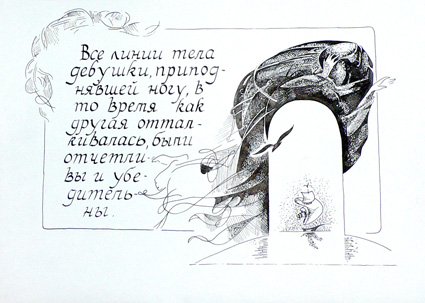 Все линии тела
девушки, припод-
нявшей ногу, в
то время как
другая оттал-
кивалась, были
отчетли-
вы и убе-
дитель-
ны.